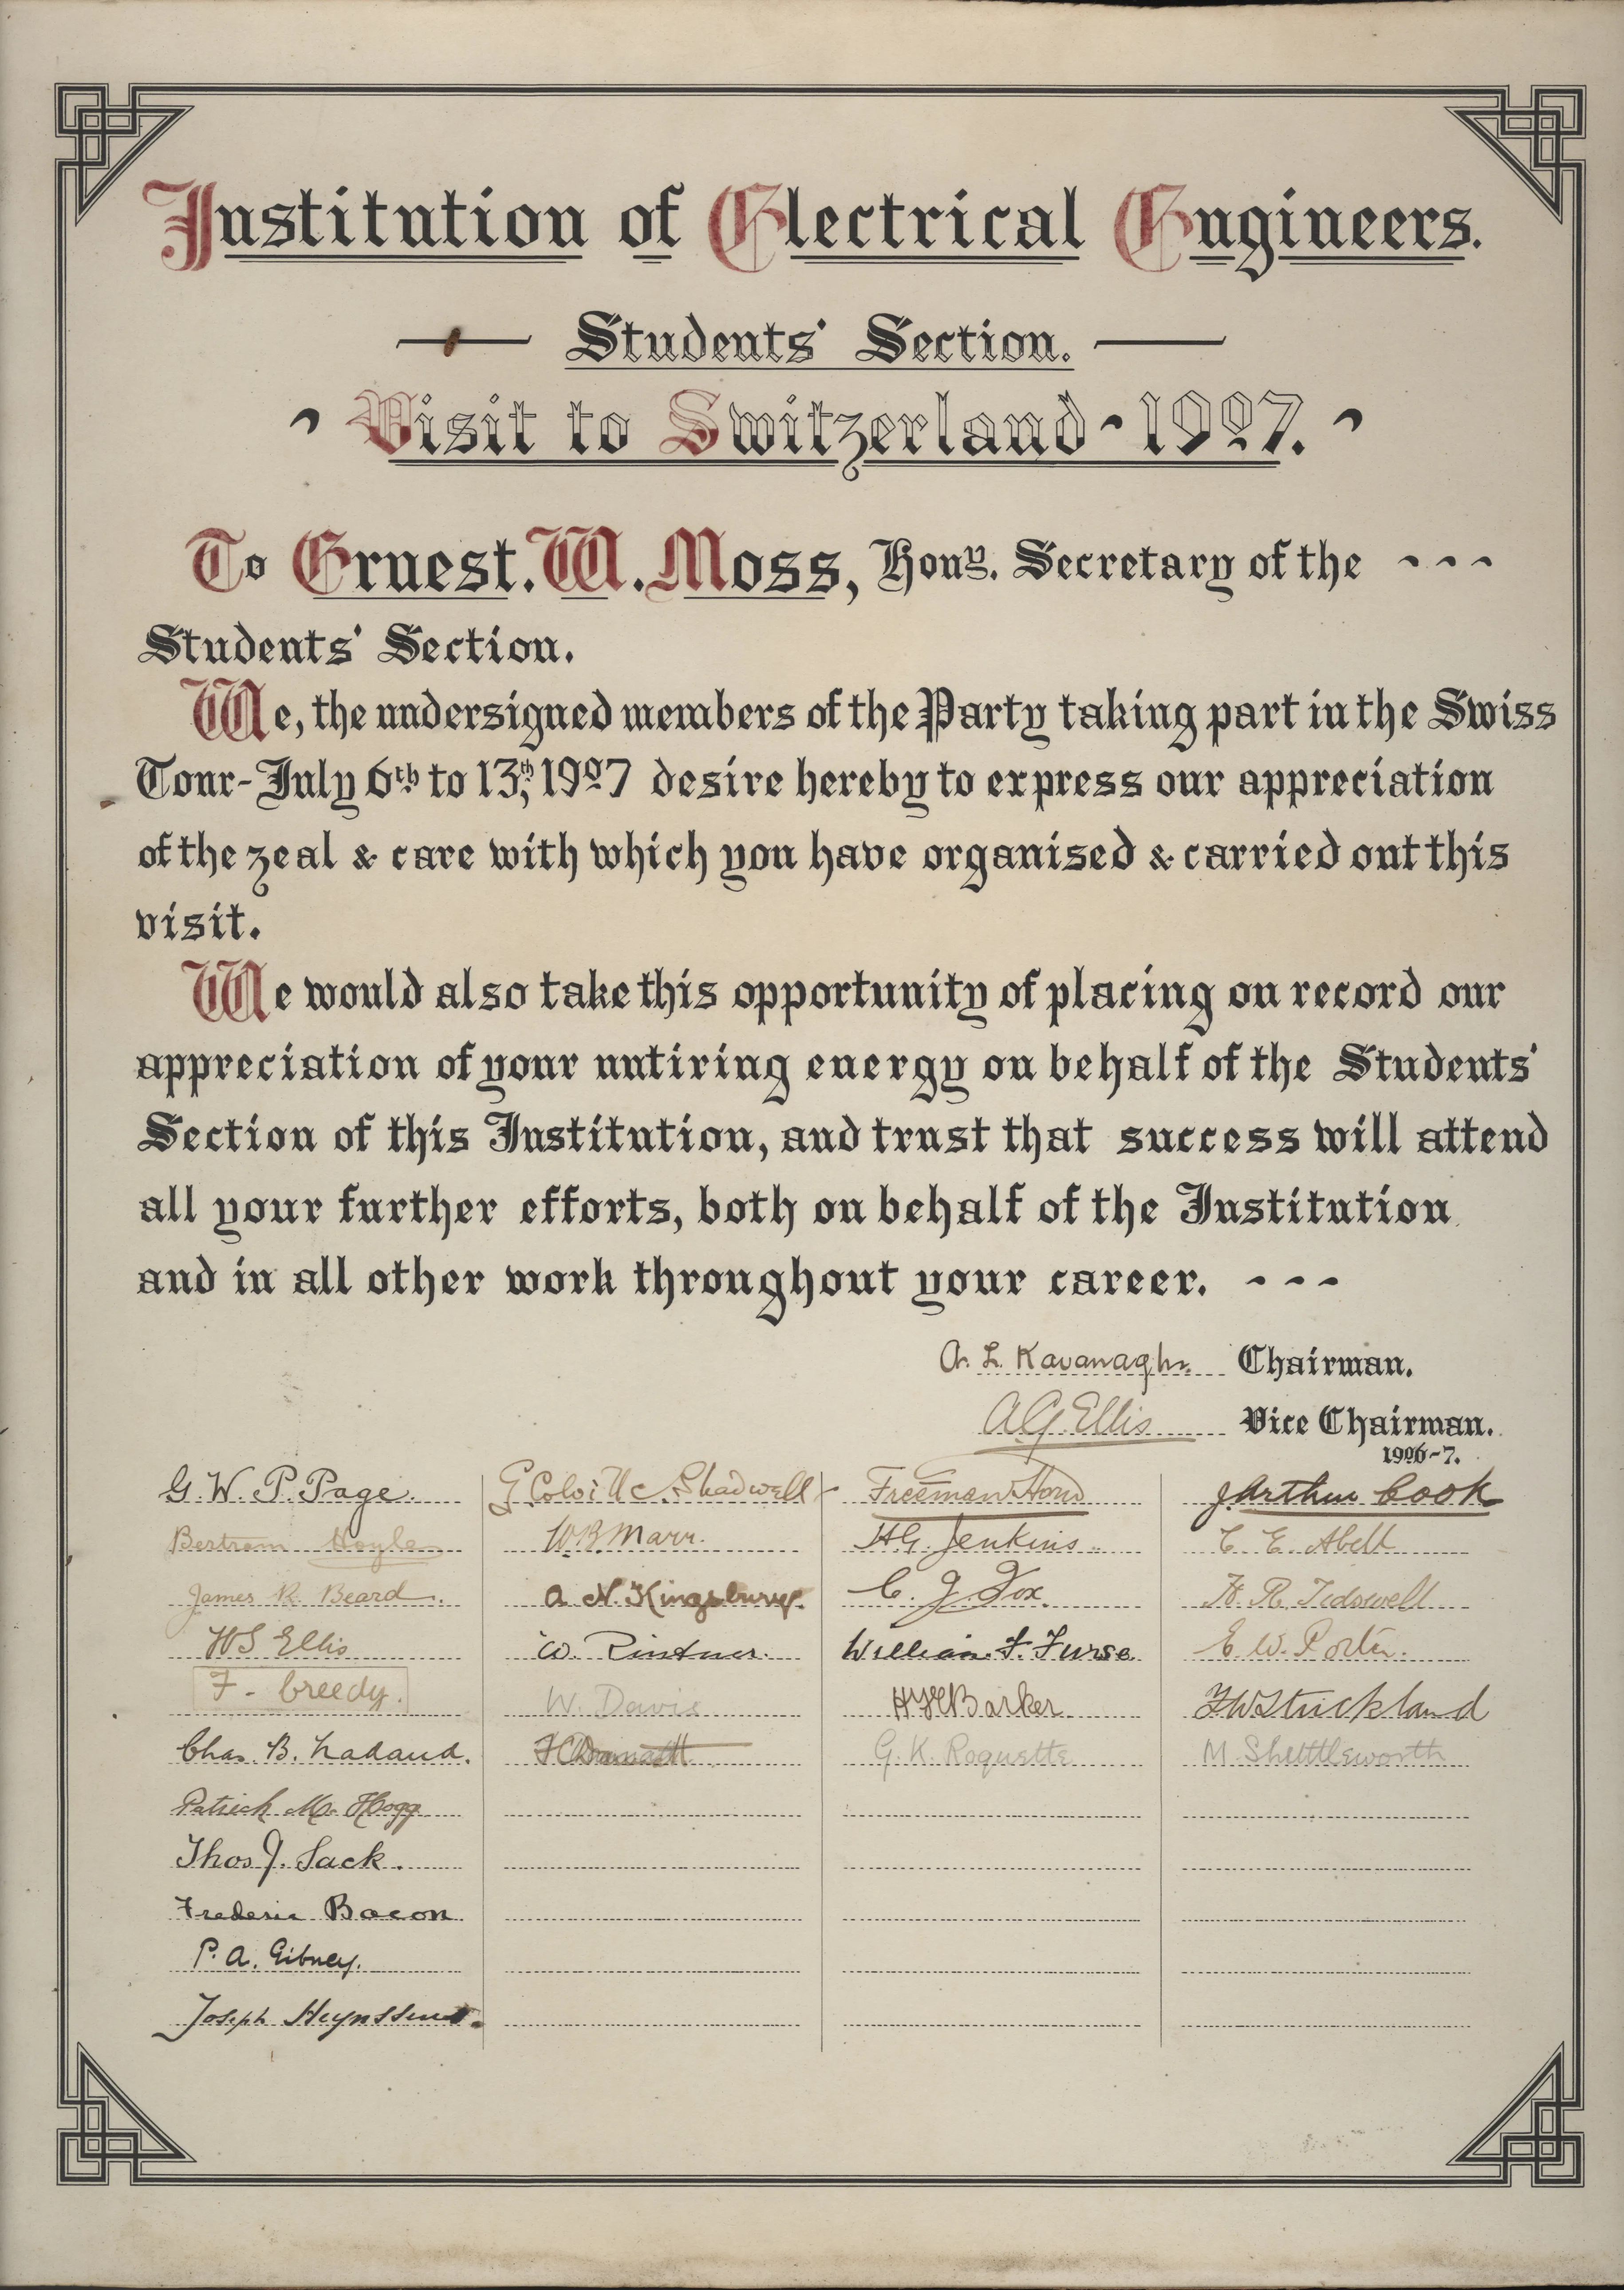 Institution of Electrical Engineers.
Students' Section.
Visit to Switzerland - 1907.
To Ernest. W. Moss, Hony. Secretary of the - - -
Students' Section.
We, the undersigned members of the Party taking part in the Swiss
Tour - July 6th to 13th, 1907 desire hereby to express our appreciation
of the zeal & care with which you have organised & carried out this
visit.
We would also take this opportunity of placing on record our
appreciation of your untiring energy on behalf of the Students'
Section of this Institution, and trust that success will attend
all your further efforts, both on behalf of the Institution
and in all other work throughout your career. - - -
A. L. Kavanagh. Chairman.
A G Ellis Vice Chairman.
1906-7.
G. W. P. Page.
Bertram Hoyle
James R. Beard.
W S Ellis
F. Creedy.
Chas. B.
Patrick Mc. Hogg
Thos J. Sack.
Frederic Bacon
P. A. Gibney.
Joseph
G. Colville Shadwell
W. B. Marr.
A N. Kingsbury.
W.
W. Davis
Freeman Horn
H G. Jenkins.
C. J. Fox.
William F. Furse.
Barker
G. K. Roquette
J. Arthur Cook
C. E. Abell
H. R. Tidswell
E. W. Porter.
F W Strickland
M. Shuttleworth